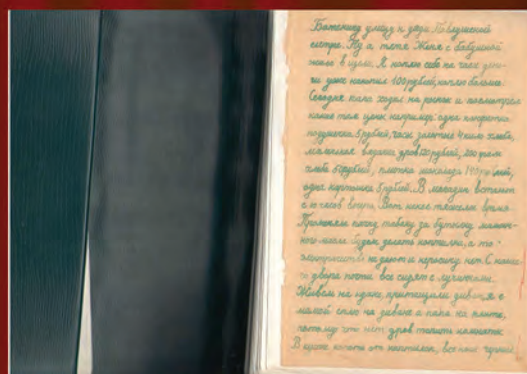 Ботенику унизу к дяди Павлушиной
сестре. Ну а тетя Женя с бабушкой
жила в щели. Я коплю себе на часы день-
ги уже накопил 100 рублей, коплю больше.
Сегодня папа ходил на рынок и посмотрел
какие там цены например: одна папироса
5 рублей, часы золотые 4 кило хлеба,
маленькая вязанка дров 120 рублей, 200 грамм
хлеба 50 рублей, плитка шоколада рублей,
одна картошка 5 рублей. В магазин встают
с 10 часов вечера. Вот какое тяжелое время.
Променяли пачку табаку за бутылку машин-
ного масла будем делать коптилки, а то
электричества не дают и керосину нет. С нашего
двора почти все сидят с лучинками.
Живем на кухне притащили диван я с
мамой сплю на диване а папа на плите,
потому что нет дров топить комнаты.
В кухне копоть от коптилок, все мы